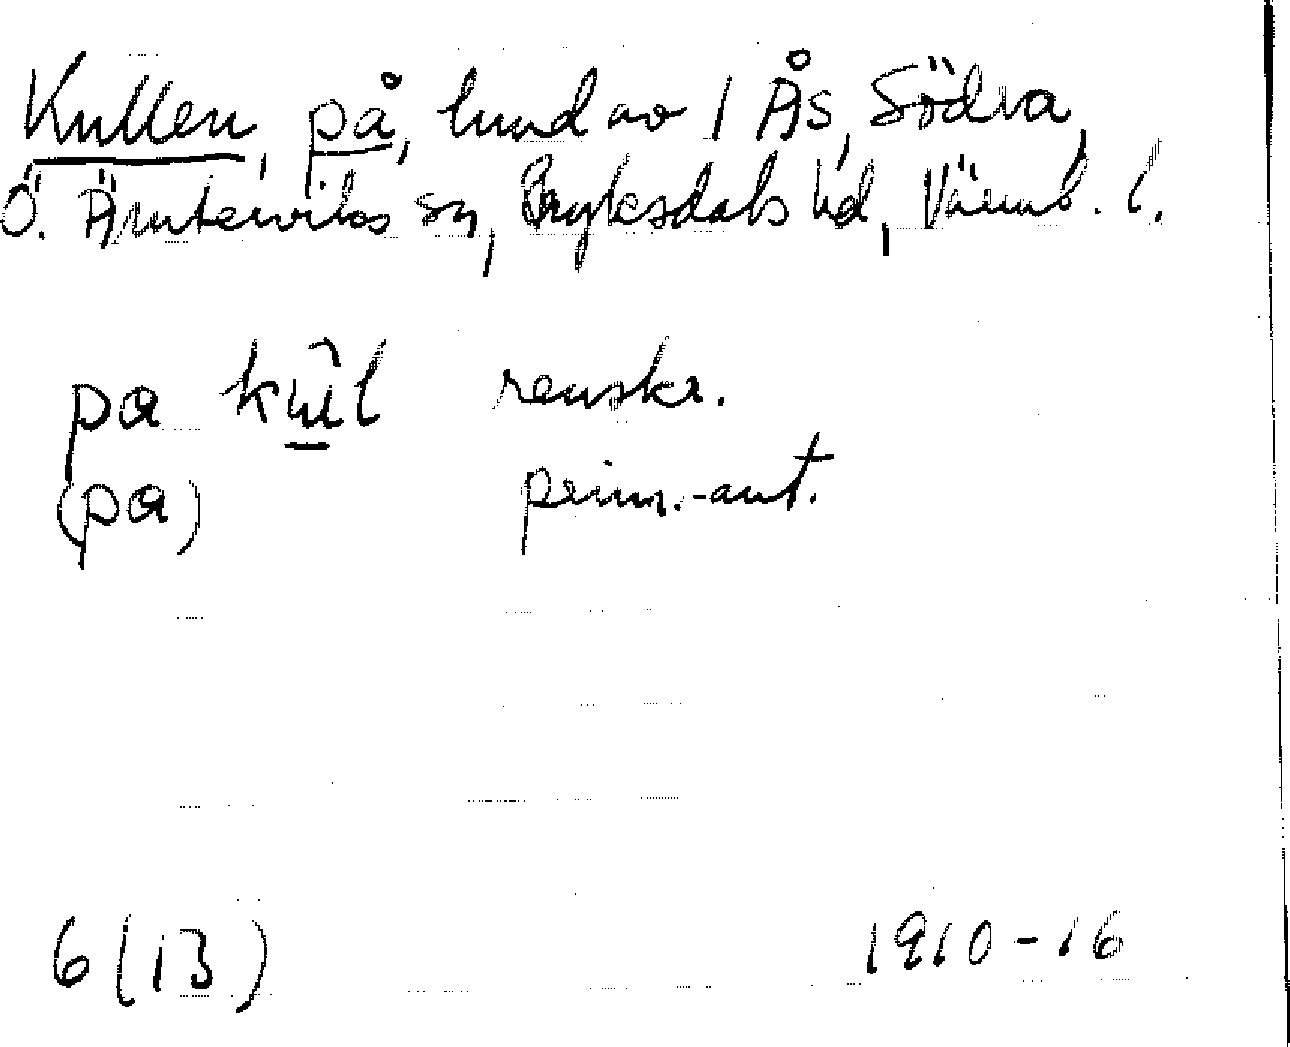 Kullen, på, lund av 1 Ås, Södra,
Ö. Ämterviks sn, Fryksdals hd, Värml. l.
pa kûl renskr.
(pa) prim.-ant.
6(13) 1910-16